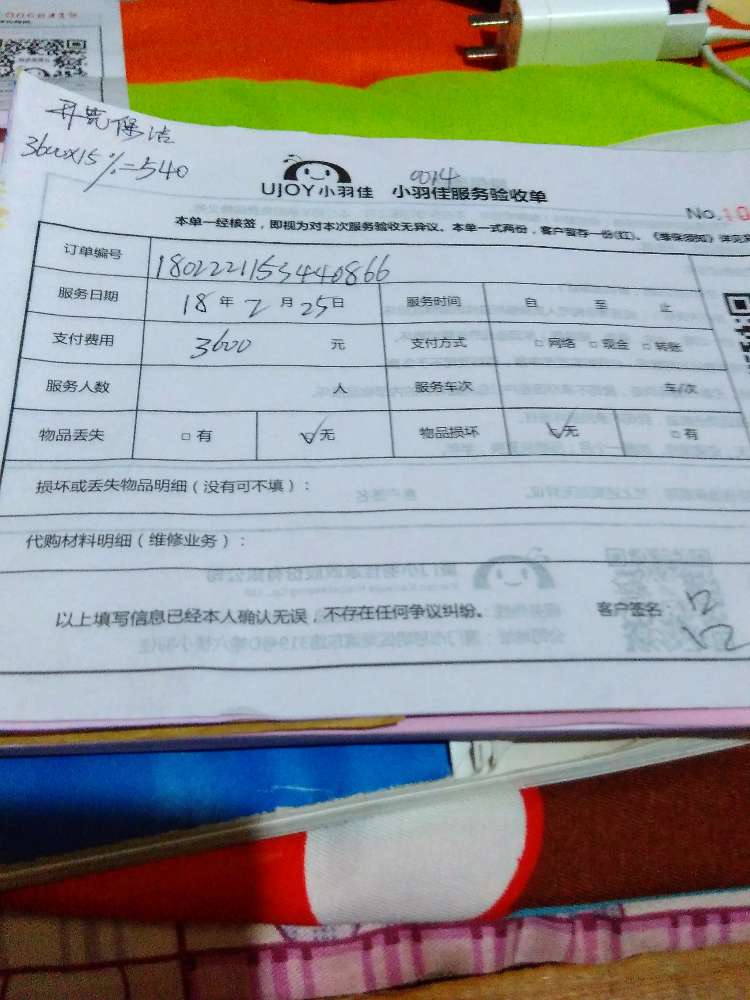 开荒保洁
3600×15%=540
0014
UJOY小羽佳 小羽佳服务验收单
No.10
本单一经核签，即视为对本次服务验收无异议。本单一式两份，客户暂存一份(红)。《维保须知》详见
订单编号 1802221153440866
服务日期 18年2月25日 服务时间 自 至 止
支付费用 3600 元 支付方式 □网络 □现金 □转账
服务人数 人 服务车次 车/次
物品丢失 □有 √无 物品损坏 √无 □有
损坏或丢失物品明细（没有可不填）：
代购材料明细（维修业务）：
以上填写信息已经本人确认无误，不存在任何争议纠纷。 客户签名：